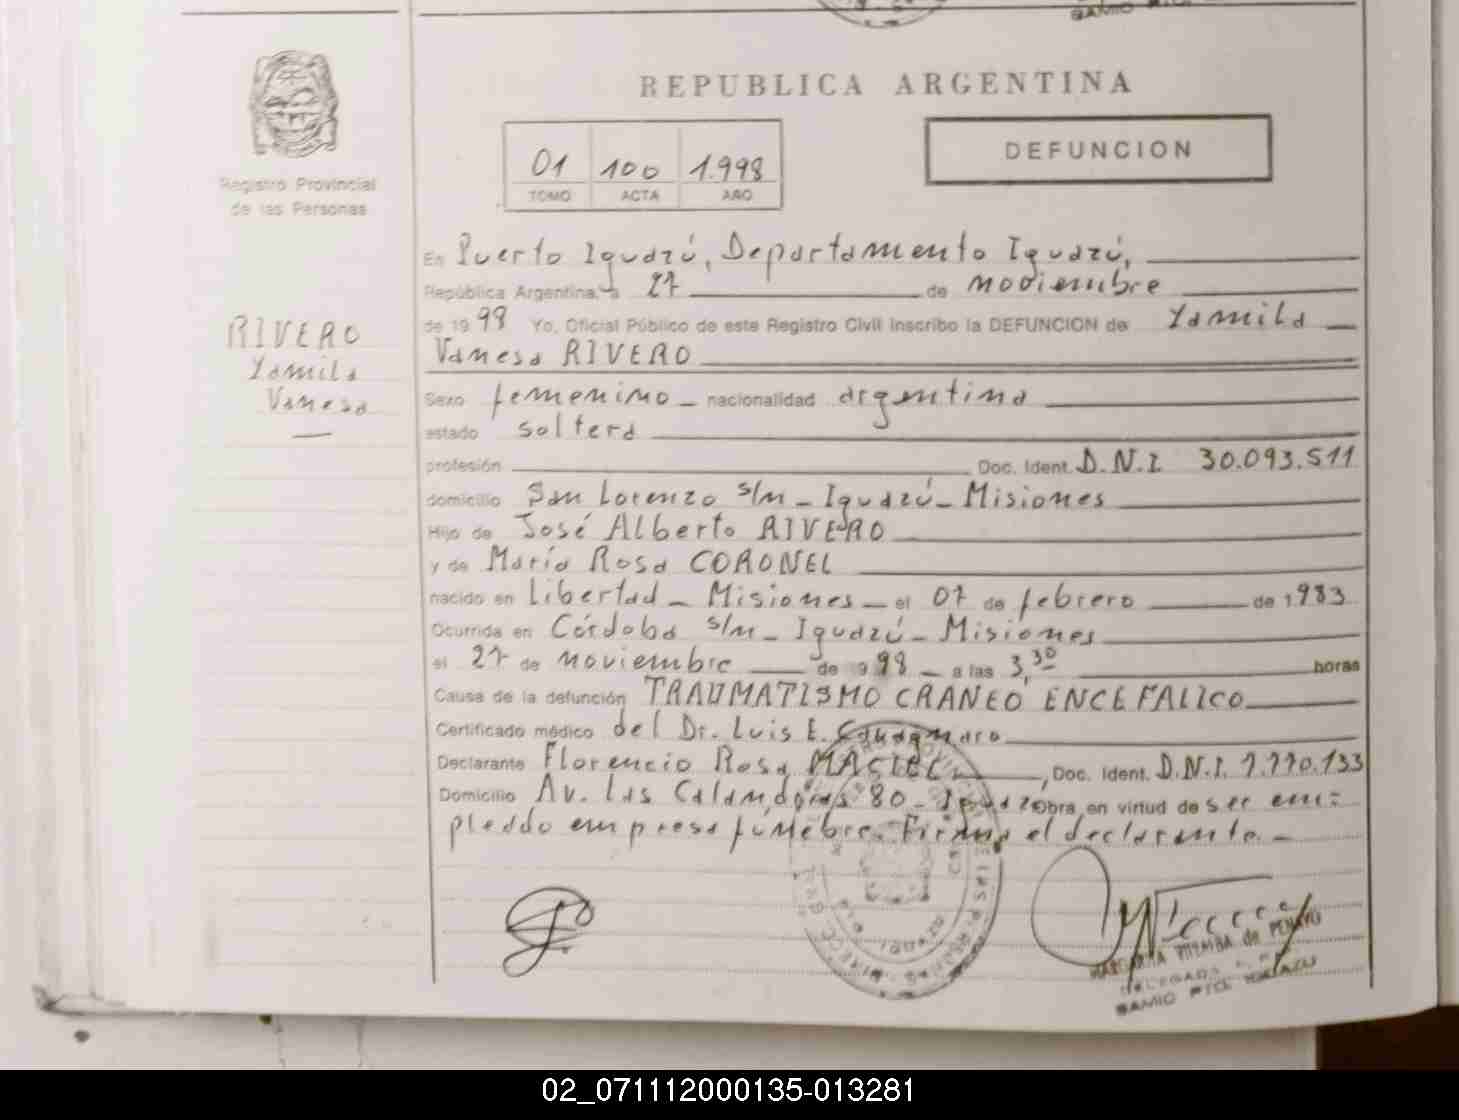 REPUBLICA ARGENTINA
DEFUNCION
01 100 1.998
TOMO ACTA AÑO
Registro Provincial
de las Personas
RIVERO
Yamila
Vanesa
En Puerto Iguazú, Departamento Iguazú,
República Argentina, a 27 de noviembre
de 1998 Yo, Oficial Público de este Registro Civil inscribo la DEFUNCION de Yamila
Vanesa RIVERO
Sexo femenino - nacionalidad argentina
estado soltera
profesión Doc. Ident. D.N.I. 30.093.511
domicilio San Lorenzo s/n - Iguazú - Misiones
Hijo de José Alberto RIVERO
y de María Rosa CORONEL
nacido en Libertad - Misiones - el 07 de febrero de 1983
Ocurrida en Córdoba s/n - Iguazú - Misiones
el 27 de noviembre de 1998 - a las 3,30 horas
Causa de la defunción TRAUMATISMO CRANEO ENCEFALICO
Certificado médico del Dr. Luis E.
Declarante Florencio Rosa MACIEL, Doc. Ident. D.N.I. 7.770.133
Domicilio Av. Las Calandrias 80 - Iguazú obra en virtud de ser em=
pleado empresa fúnebre. Firma el declarante. -
MARGARITA de PENAYO
DELEGADA
02_071112000135-013281